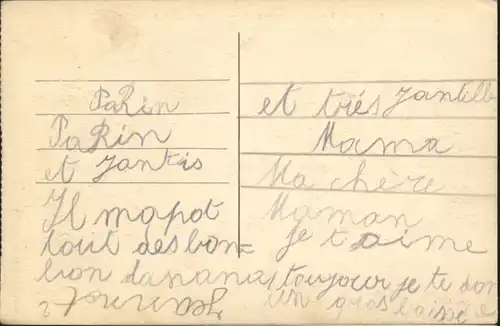 PaRin
PaRin
et jantis
Il mapot
tout des bon=
bon danana
et très jantille
Mama
Ma chère
Maman
je t aime
toujour je te don
un gros baisse